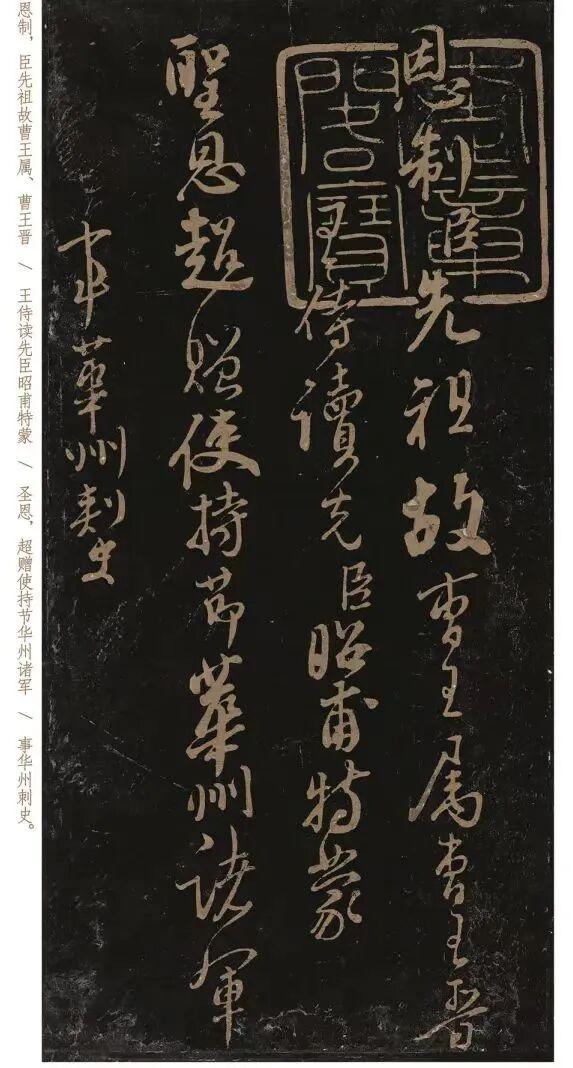 恩制臣先祖故曹王属曹王晋
王侍读先臣昭甫特蒙
聖恩超赠使持节華州诸軍
事華州刺史
恩制，臣先祖故曹王属、曹王晋 / 王侍读先臣昭甫特蒙 / 圣恩，超赠使持节华州诸军 / 事华州刺史。